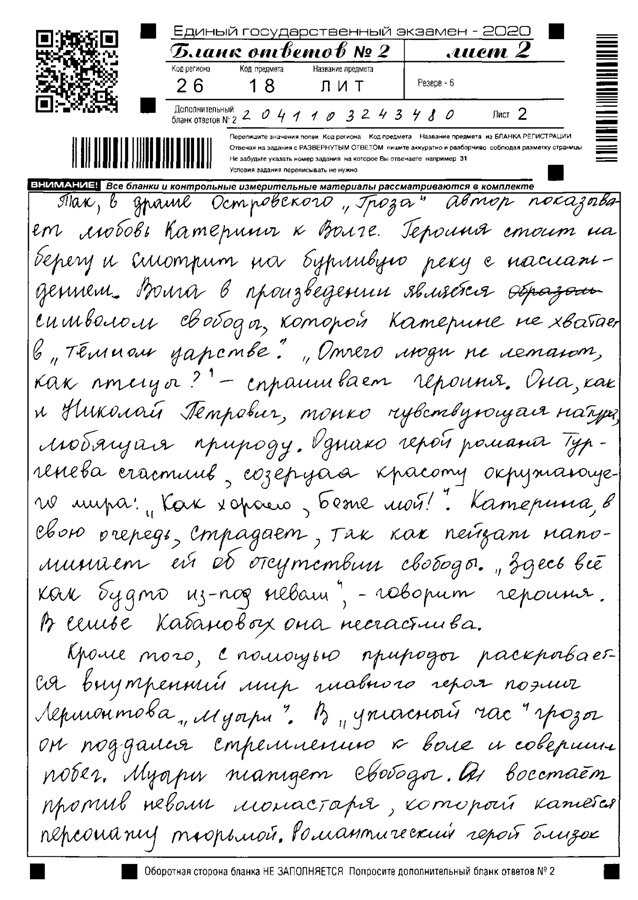 Единый государственный экзамен - 2020
Бланк ответов № 2 лист 2
Код региона Код предмета Название предмета
26 18 ЛИТ Резерв - 6
Дополнительный
бланк ответов № 2 2041103243480 Лист 2
Перепишите значения полей Код региона Код предмета Название предмета из БЛАНКА РЕГИСТРАЦИИ
Отвечая на задания с РАЗВЕРНУТЫМ ОТВЕТОМ пишите аккуратно и разборчиво соблюдая разметку страницы
Не забудьте указать номер задания на которое Вы отвечаете например 31
Условия задания переписывать не нужно
ВНИМАНИЕ! Все бланки и контрольные измерительные материалы рассматриваются в комплекте
Так, в драме Островского „Гроза" автор показыва
ет любовь Катерины к Волге. Героиня стоит на
берегу и смотрит на бурливую реку с наслаж-
дением. Волга в произведении является образом
символом свободы, которой Катерине не хватает
в „тёмном царстве". „Отчего люди не летают,
как птицы?" – спрашивает героиня. Она, как
и Николай Петрович, тонко чувствующая натура,
любящая природу. Однако герой романа Тур-
генева счастлив, созерцая красоту окружающе-
го мира: „Как хорошо, Боже мой!". Катерина, в
свою очередь, страдает, так как пейзаж напо-
минает ей об отсутствии свободы. „Здесь всё
как будто из-под неволи", - говорит героиня.
В семье Кабановых она несчастлива.
Кроме того, с помощью природы раскрывает-
ся внутренний мир главного героя поэмы
Лермонтова „Мцыри". В „ужасный час" грозы
он поддался стремлению к воле и совершил
побег. Мцыри жаждет свободы. Он восстаёт
против неволи монастаря, который кажется
персонажу тюрьмой. Романтический герой близок
Оборотная сторона бланка НЕ ЗАПОЛНЯЕТСЯ Попросите дополнительный бланк ответов № 2